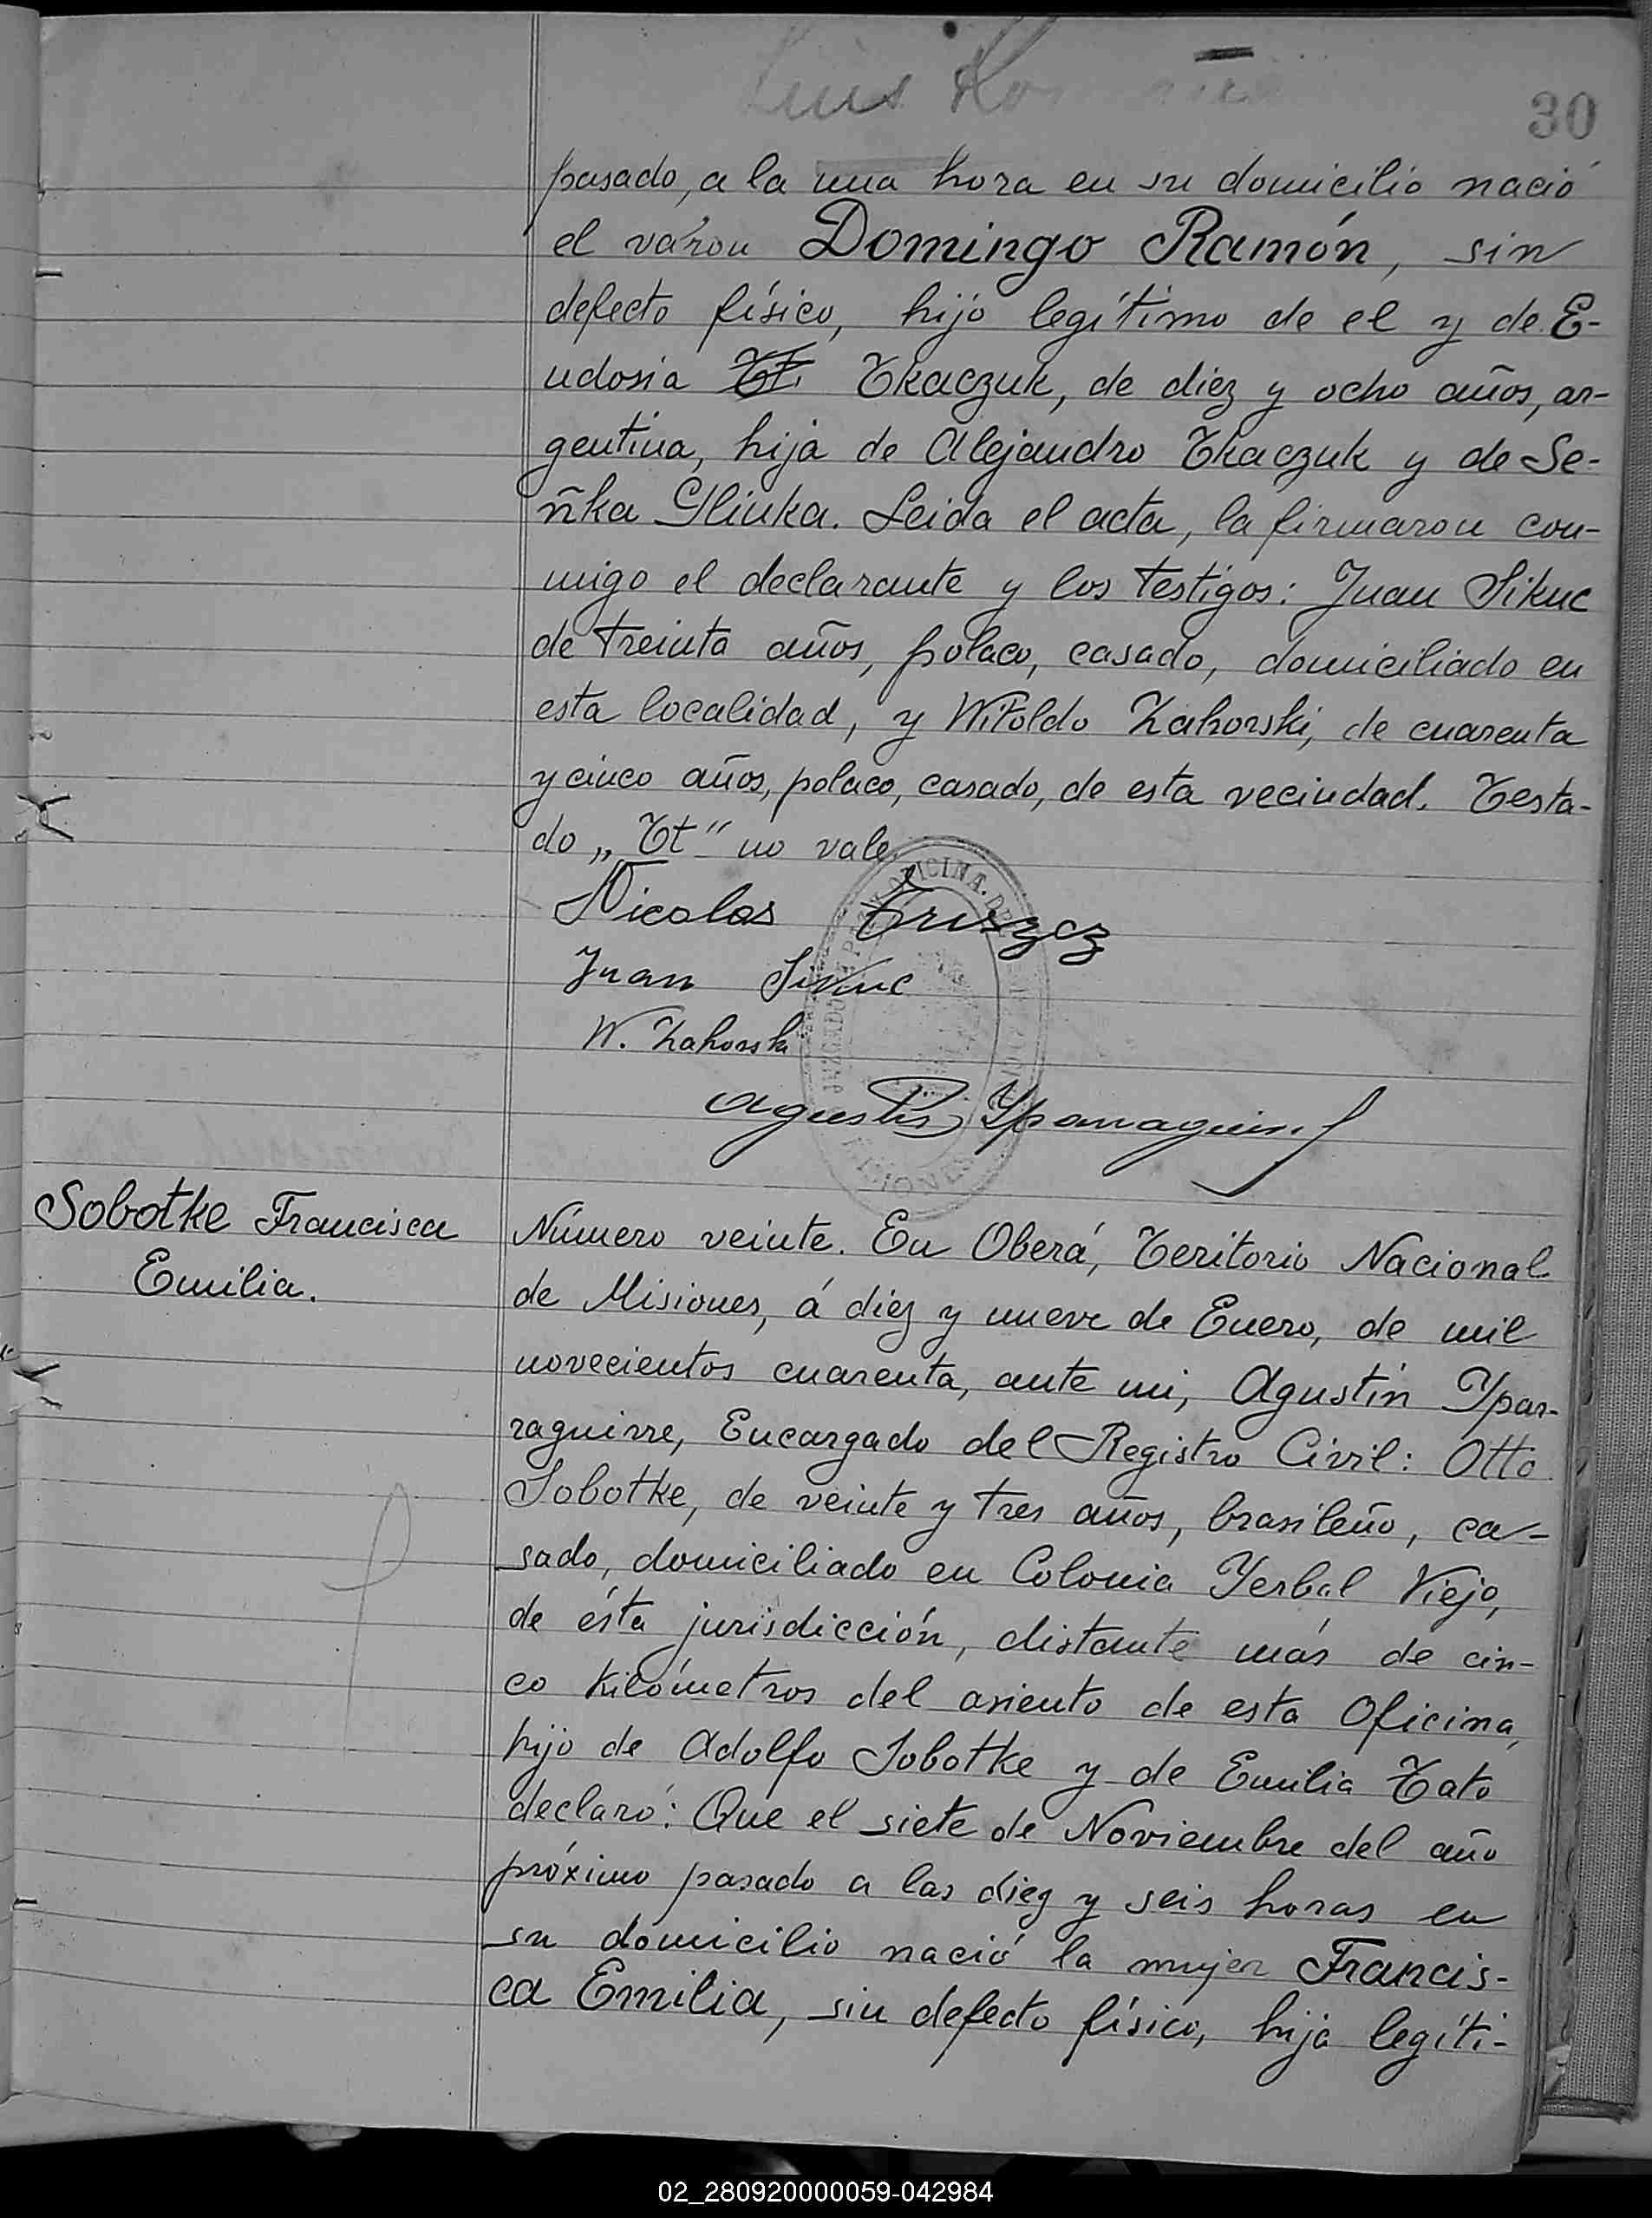 Luis
30
pasado, a la una hora en su domicilio nació
el varon Domingo Ramón, sin
defecto físico, hijo legítimo de el y de E-
udosia Tt. Tkaczuk, de diez y ocho años, ar-
gentina, hija de Alejandro Tkaczuk y de Se-
ñka Glinka. Leida el acta, la firmaron con-
migo el declarante y los testigos: Juan Sikuc
de treinta años, polaco, casado, domiciliado en
esta localidad, y Witoldo Zahorski, de cuarenta
y cinco años, polaco, casado, de esta vecindad. Testa-
do „Tt" no vale.
Nicolas Truszcz
Juan Sikuc
W. Zahorski
OFICINA. DEL
JUZGADO
MISIONES
Agustin Yparraguirre
Sobotke Francisca
Emilia.
Número veinte. En Oberá, Teritorio Nacional
de Misiones, á diez y nueve de Enero, de mil
novecientos cuarenta, ante mi, Agustín Ypar-
raguirre, Encargado del Registro Civil: Otto
Sobotke, de veinte y tres años, brasileño, ca-
sado, domiciliado en Colonia Yerbal Viejo,
de ésta jurisdicción, distante más de cin-
co kilómetros del asiento de esta Oficina,
hijo de Adolfo Sobotke y de Emilia Tato
declaró: Que el siete de Noviembre del año
próximo pasado a las diez y seis horas en
su domicilio nació la mujer Francis-
ca Emilia, sin defecto físico, hija legíti-
02_280920000059-042984